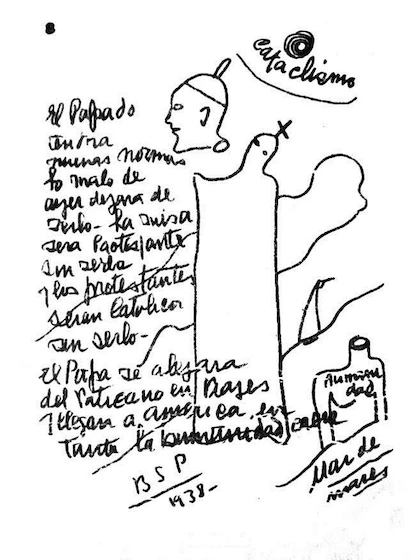 8
Cataclismo
El Papado
tendra
nuevas normas
lo malo de
ayer dejara de
serlo - La misa
sera Protestante
sin serlo
y los protestantes
seran Catolicos
sin serlo -
El Papa se alejara
del Vaticano en viajes
y llegara a America, en
tanto la humanidad caera
B S P
1938 -
Humani
dad
Mar de
mares